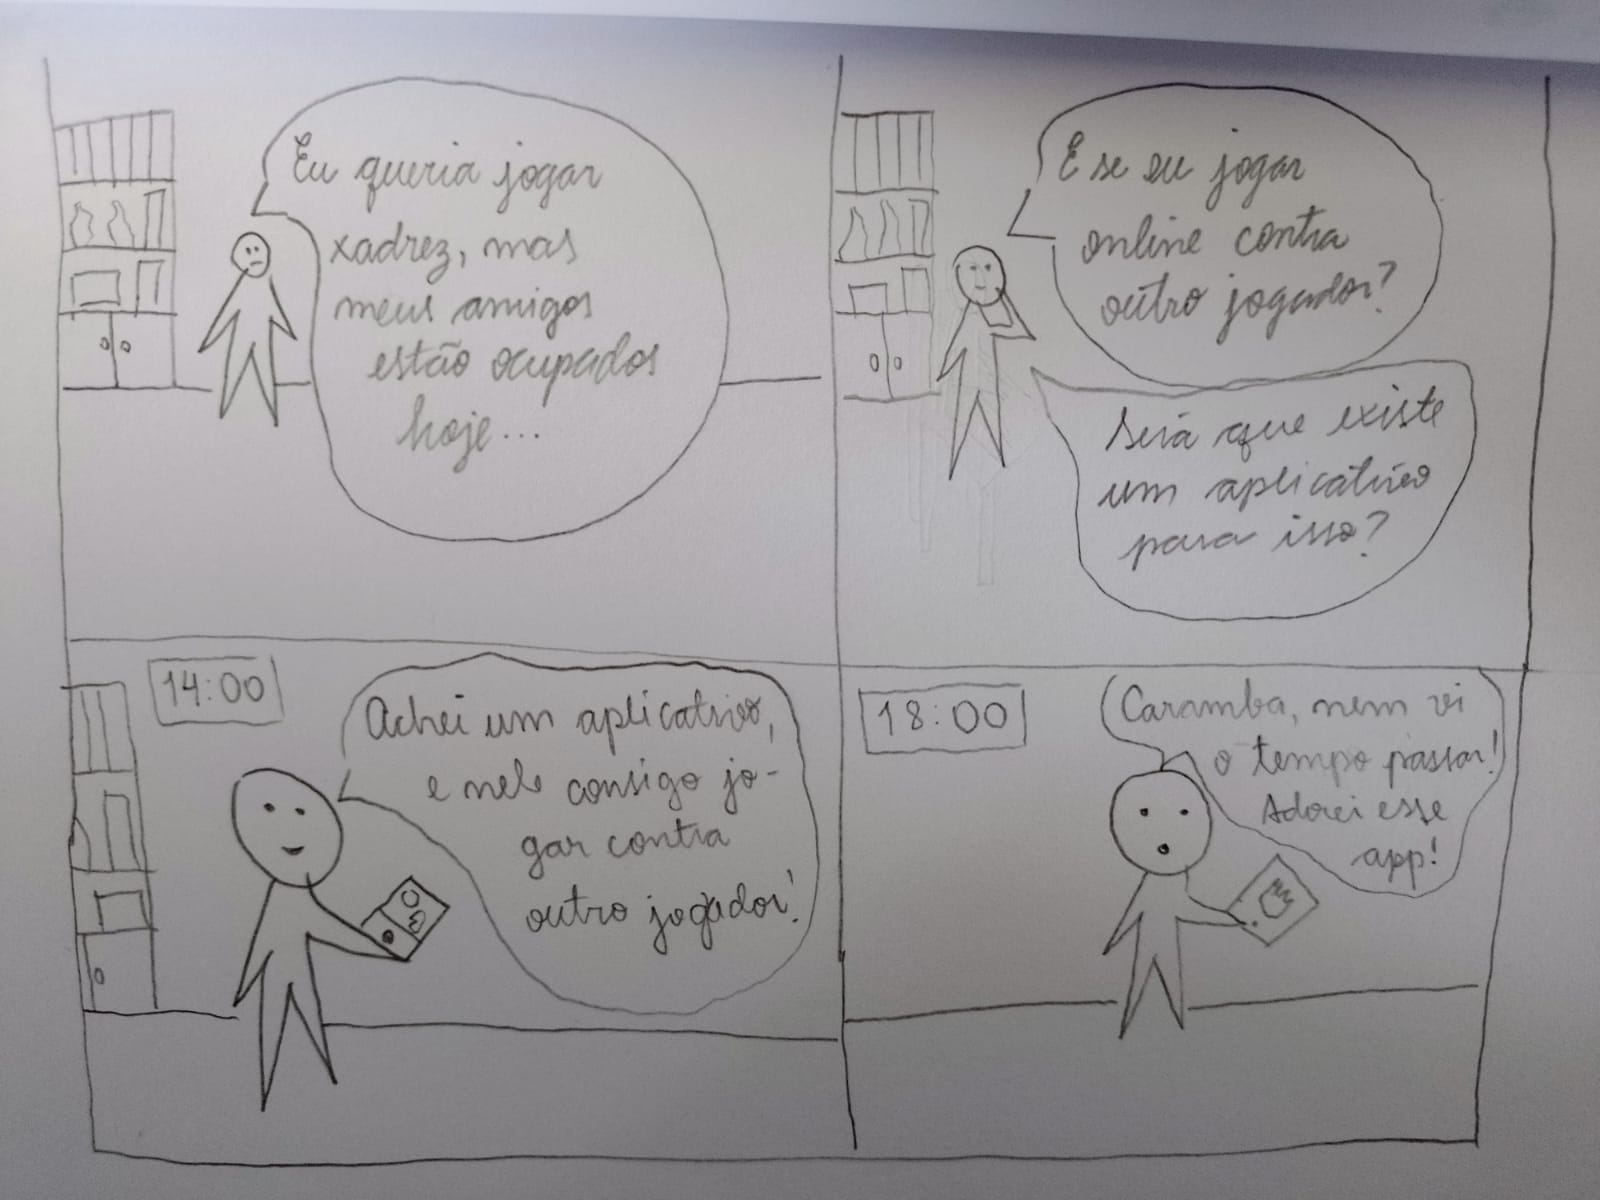 Eu queria jogar
xadrez, mas
meus amigos
estão ocupados
hoje...
E se eu jogar
online contra
outro jogador?
Será que existe
um aplicativo
para isso?
14:00
Achei um aplicativo,
e nele consigo jo-
gar contra
outro jogador!
18:00
Caramba, nem vi
o tempo passar!
Adorei esse
app!